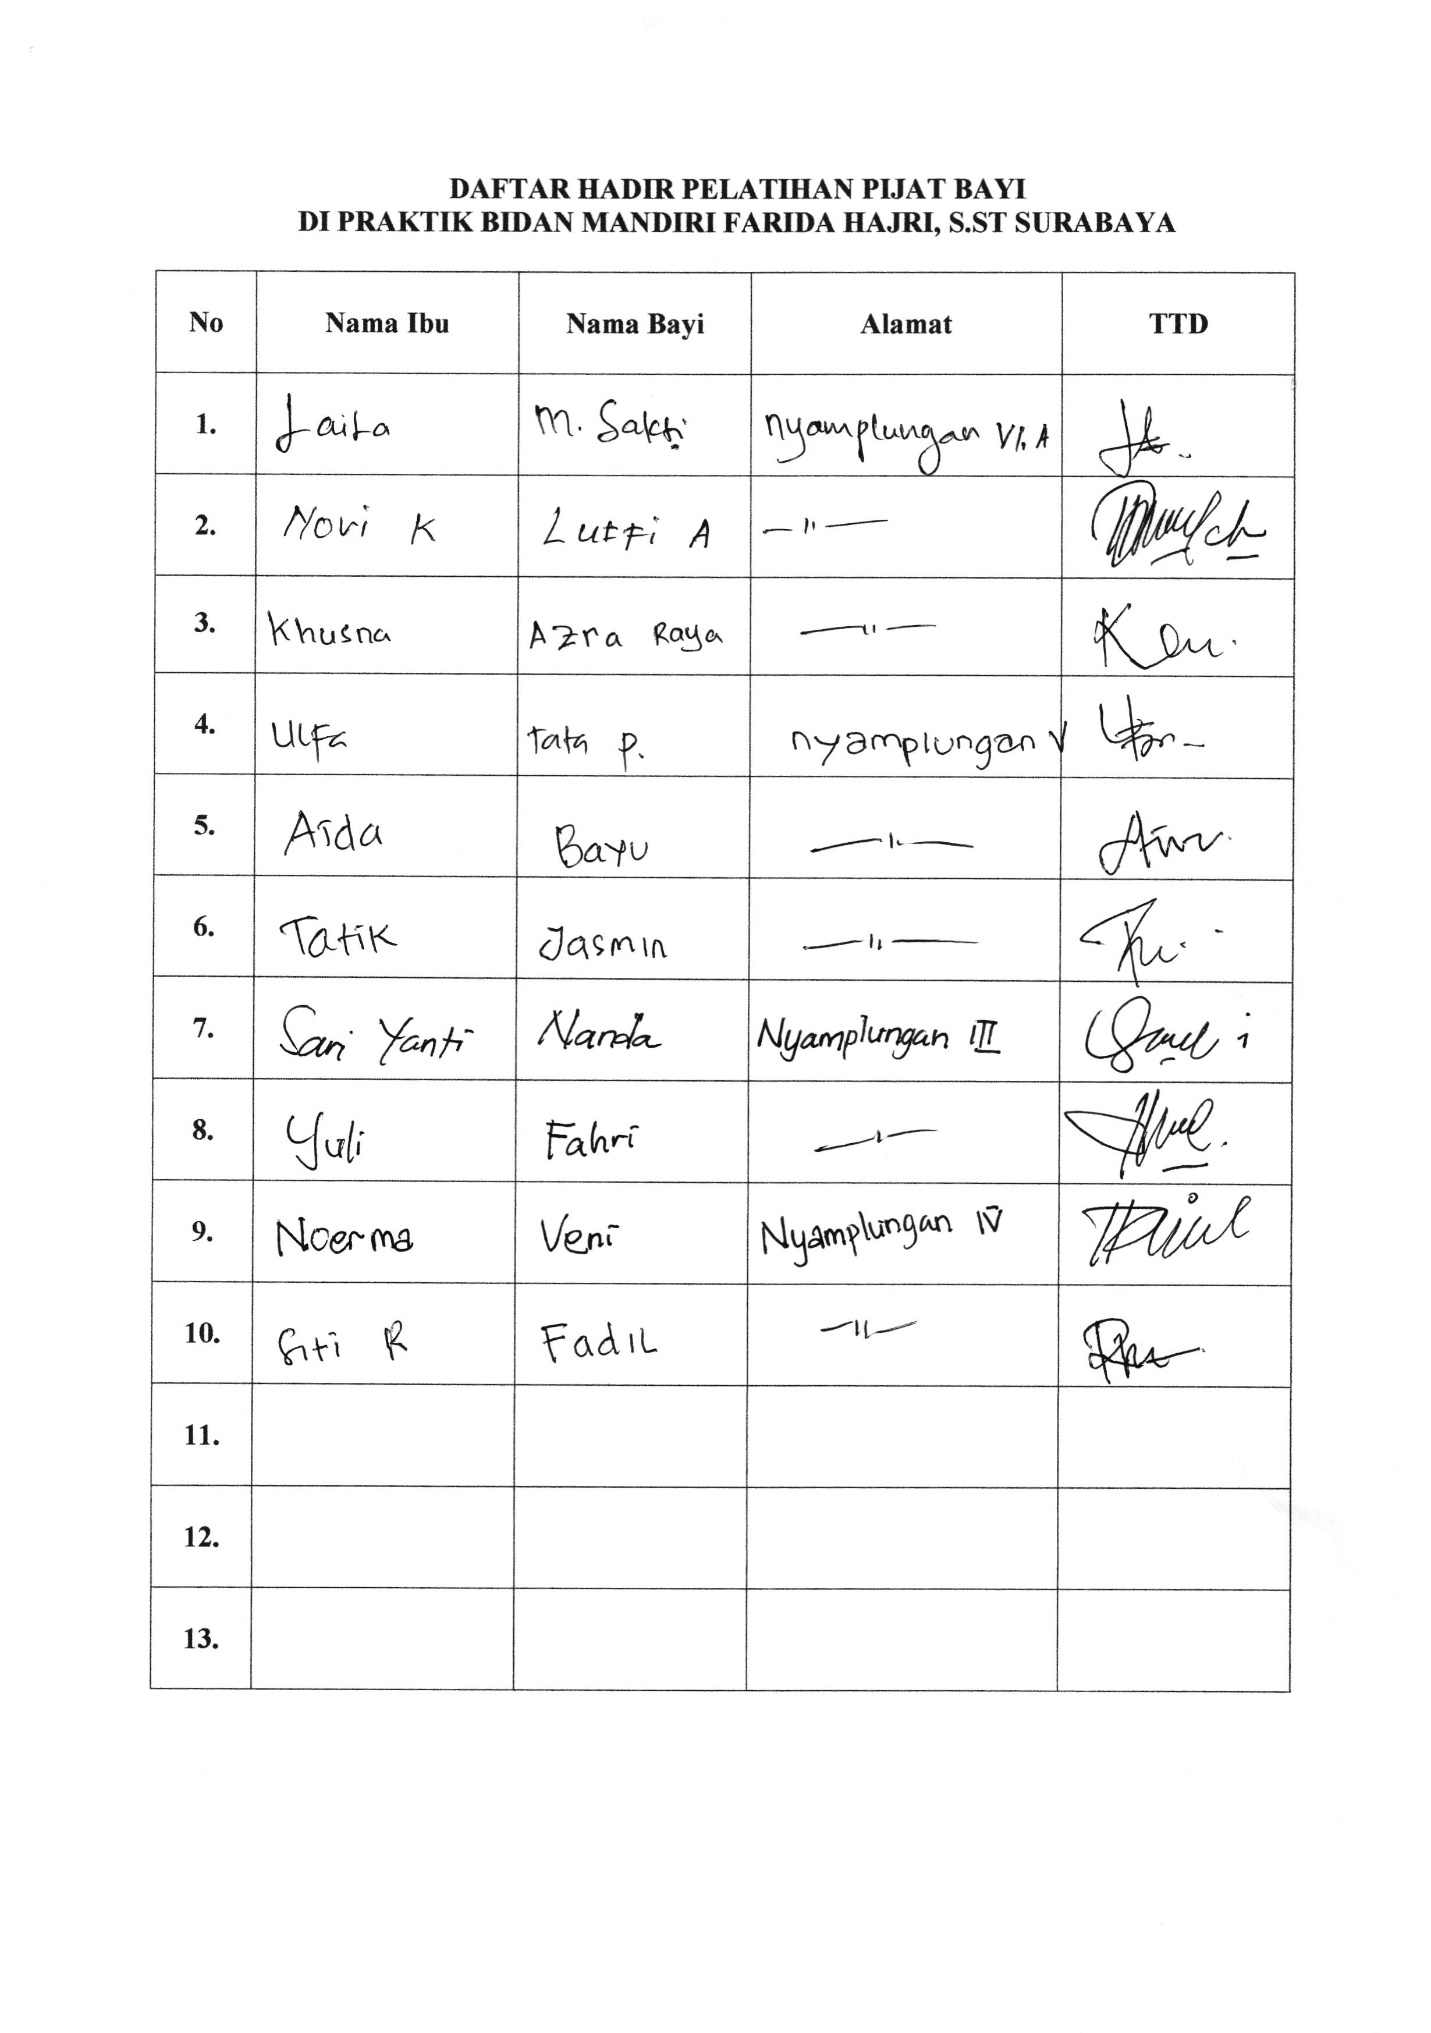 DAFTAR HADIR PELATIHAN PIJAT BAYI
DI PRAKTIK BIDAN MANDIRI FARIDA HAJRI, S.ST SURABAYA
No Nama Ibu Nama Bayi Alamat TTD
1. Laila M. Sakti nyamplungan VI. A
2. Novi K Lutfi A — " —
3. Khusna Azra Raya — " —
4. Ulfa Tata P. nyamplungan V
5. Aida Bayu — " —
6. Tatik Jasmin — " —
7. Sari Yanti Nanda Nyamplungan III
8. Yuli Fahri — " —
9. Noerma Veni Nyamplungan IV
10. Siti R Fadil — " —
11.
12.
13.